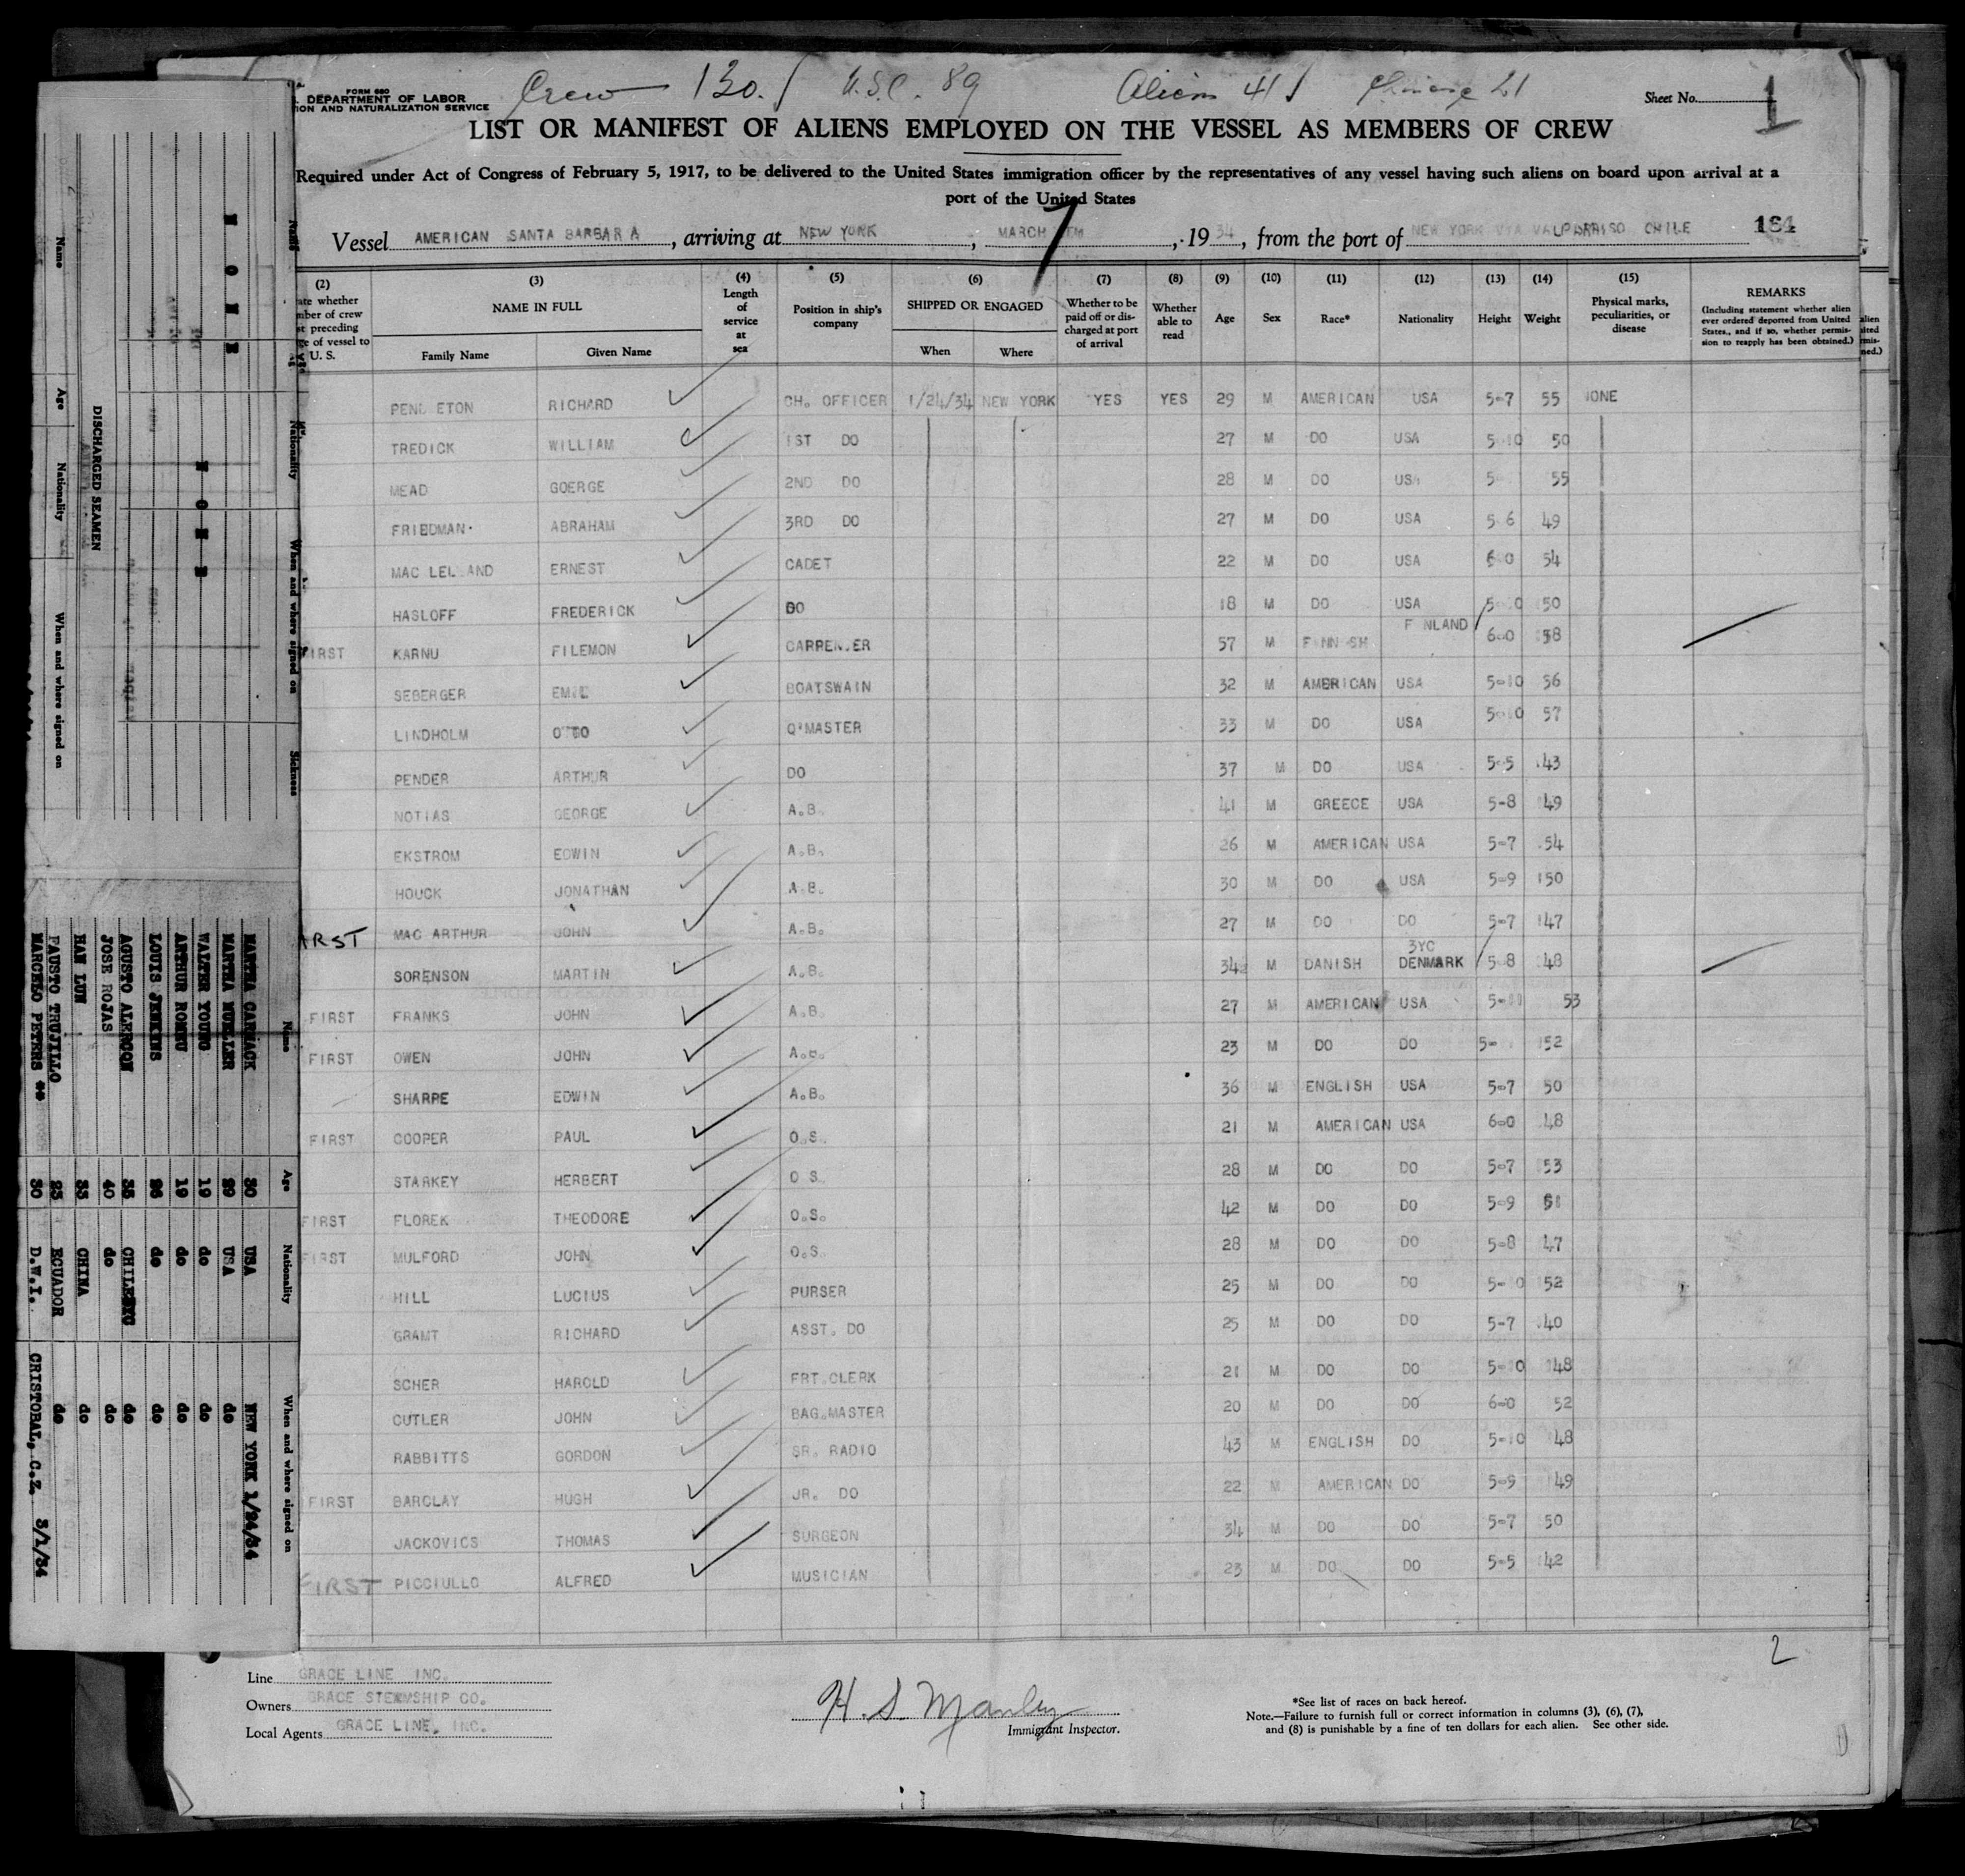 Crew 130. U.S.C. 89 Aliens 41 Chinese 21
FORM 680
DEPARTMENT OF LABOR
ION AND NATURALIZATION SERVICE
Sheet No. 1
LIST OR MANIFEST OF ALIENS EMPLOYED ON THE VESSEL AS MEMBERS OF CREW
Required under Act of Congress of February 5, 1917, to be delivered to the United States immigration officer by the representatives of any vessel having such aliens on board upon arrival at a
port of the United States
Vessel AMERICAN SANTA BARBARA, arriving at NEW YORK, MARCH 7, 1934, from the port of NEW YORK VIA VALPARAISO CHILE 184
(2) (3) (4) (5) (6) (7) (8) (9) (10) (11) (12) (13) (14) (15)
NAME IN FULL
Family Name Given Name
Length of service at sea
Position in ship's company
SHIPPED OR ENGAGED
When Where
Whether to be paid off or discharged at port of arrival
Whether able to read
Age Sex Race* Nationality Height Weight
Physical marks, peculiarities, or disease
REMARKS
(Including statement whether alien ever ordered deported from United States, and if so, whether permission to reapply has been obtained.)
PENDLETON RICHARD CH. OFFICER 1/24/34 NEW YORK YES YES 29 M AMERICAN USA 5-7 55 NONE
TREDICK WILLIAM 1ST DO 27 M DO USA 5 10 50
MEAD GOERGE 2ND DO 28 M DO USA 5 55
FRIEDMAN ABRAHAM 3RD DO 27 M DO USA 5 6 49
MAC LELLAND ERNEST CADET 22 M DO USA 6 0 54
HASLOFF FREDERICK DO 18 M DO USA 50
FIRST KARNU FILEMON CARPENTER 57 M FINNISH FINLAND 6-0 58
SEBERGER EMIL BOATSWAIN 32 M AMERICAN USA 5-10 56
LINDHOLM OTTO Q'MASTER 33 M DO USA 5-10 57
PENDER ARTHUR DO 37 M DO USA 5-5 43
NOTIAS GEORGE A.B. 41 M GREECE USA 5-8 49
EKSTROM EDWIN A.B. 26 M AMERICAN USA 5-7 54
HOUCK JONATHAN A.B. 30 M DO USA 5-9 150
FIRST MAC ARTHUR JOHN A.B. 27 M DO DO 5-7 147
SORENSON MARTIN A.B. 34 M DANISH 3YC DENMARK 5-8 48
FIRST FRANKS JOHN A.B. 27 M AMERICAN USA 53
FIRST OWEN JOHN A.B. 23 M DO DO 5- 152
SHARPE EDWIN A.B. 36 M ENGLISH USA 5-7 50
FIRST COOPER PAUL O.S. 21 M AMERICAN USA 6-0 48
STARKEY HERBERT O S. 28 M DO DO 5-7 53
FIRST FLOREK THEODORE O.S. 42 M DO DO 5-9
FIRST MULFORD JOHN O.S. 28 M DO DO 5-8 47
HILL LUCIUS PURSER 25 M DO DO 5-10 152
GRAMT RICHARD ASST. DO 25 M DO DO 5-7 40
SCHER HAROLD FRT.CLERK 21 M DO DO 5-10 148
CUTLER JOHN BAG.MASTER 20 M DO DO 6-0 52
RABBITTS GORDON SR. RADIO 43 M ENGLISH DO 5-10 48
FIRST BARCLAY HUGH JR. DO 22 M AMERICAN DO 5-9 49
JACKOVICS THOMAS SURGEON 34 M DO DO 5-7 50
FIRST PICCIULLO ALFRED MUSICIAN 23 M DO DO 5-5 142
2
Line GRACE LINE INC.
Owners GRACE STEAMSHIP CO.
Local Agents GRACE LINE, INC.
H. S. Manley
Immigrant Inspector.
*See list of races on back hereof.
Note.—Failure to furnish full or correct information in columns (3), (6), (7),
and (8) is punishable by a fine of ten dollars for each alien. See other side.
DISCHARGED SEAMEN
Name Age Nationality When and where signed on
NONE
NONE
Sickness
Name Age Nationality When and where signed on
MARTHA CARMACK 30 USA NEW YORK 1/24/34
MARTHA MUELLER 29 USA do
WALTER YOUNG 19 do do
ARTHUR ROMNU 19 do do
LOUIS JENKINS 26 do do
AGUSTO ALERCON 35 do
JOSE ROJAS 40 do do
HAN LUM 33 CHINA do
FAUSTO TRUJILLO 23 ECUADOR do
MARCELO PETERS ** 30 D.W.I. CRISTOBAL, C.Z. 3/1/34